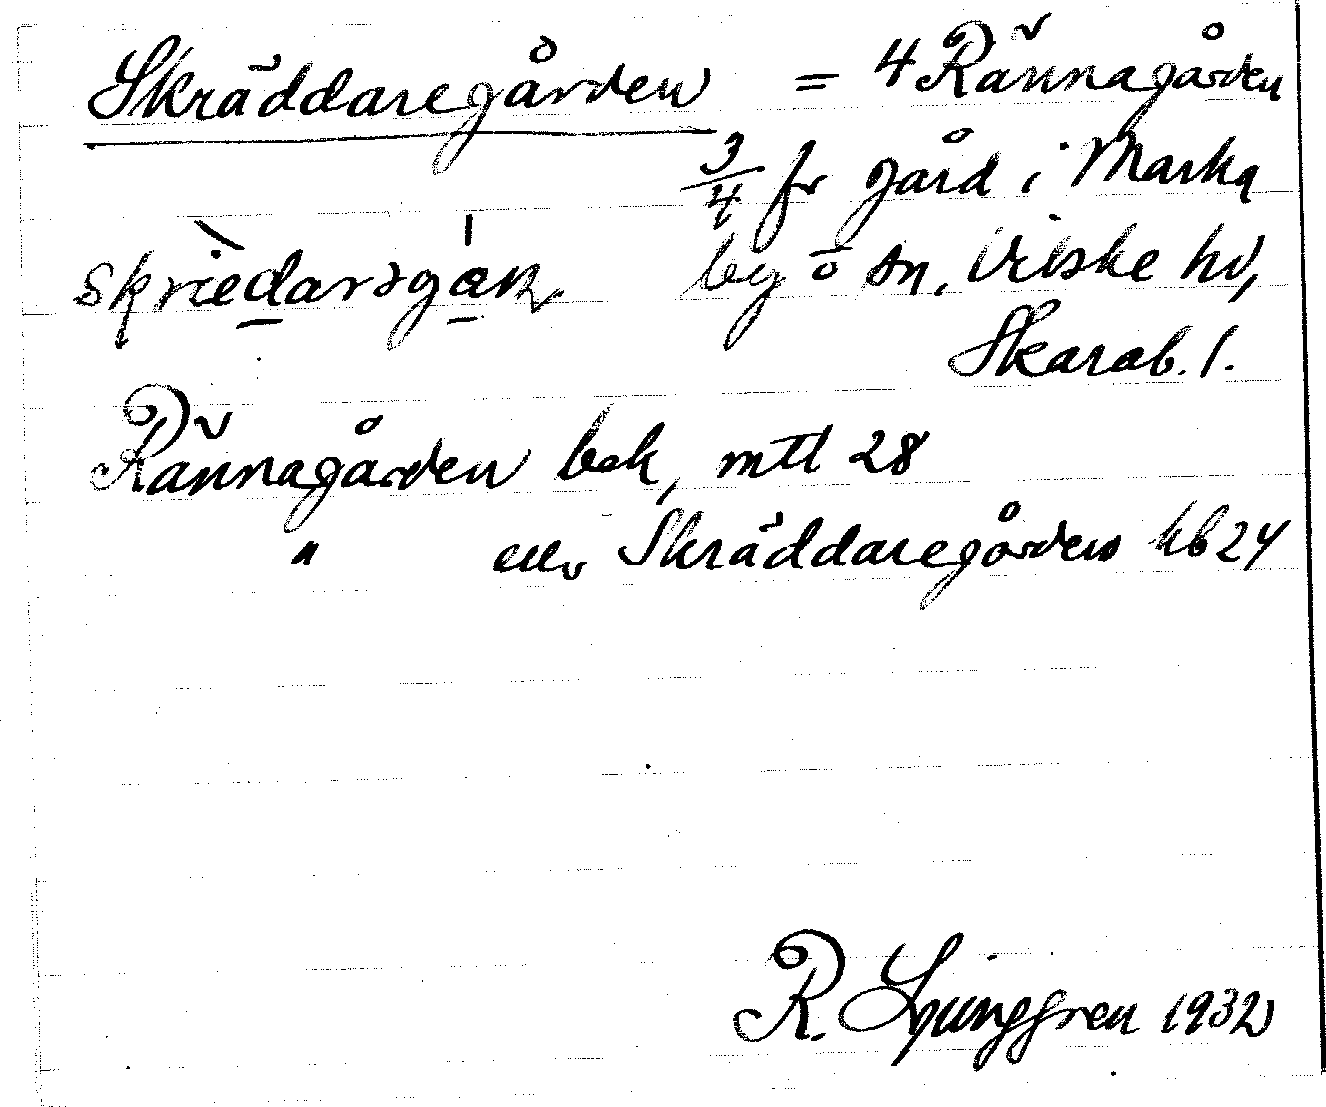 Skräddaregården = 4 Rännagården
3/4 fr gård i Marka
skriedarsgan by o sn, Vilske hd,
Skarab. l.
Rännagården bok, mtl 28
" eller Skräddaregården kb 24
R. Ljunggren 1932